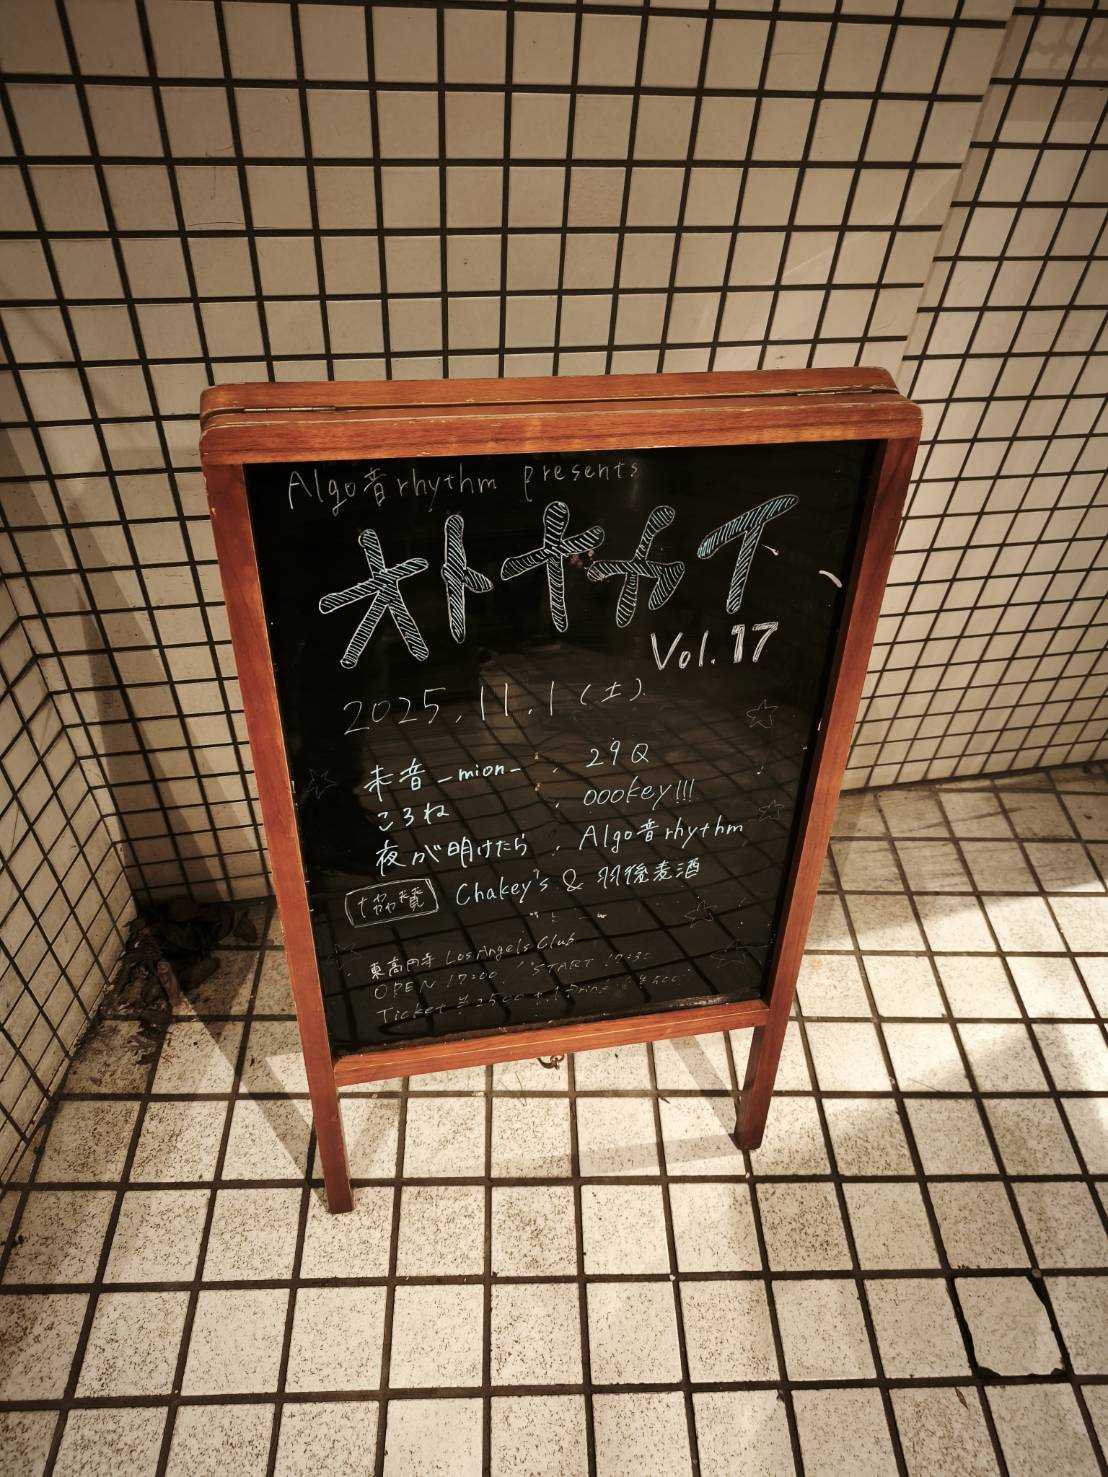 Algo音rhythm presents
オトナカイ
Vol.17
2025.11.1(土)
未音 -mion-
ころね
夜が明けたら
29Q
oookey!!!
Algo音rhythm
協賛 Chakey's & 羽後麦酒
東高円寺 Los Angels Club
OPEN 17:00 / START 17:30
Ticket ¥2500 + 1 Drink ¥600